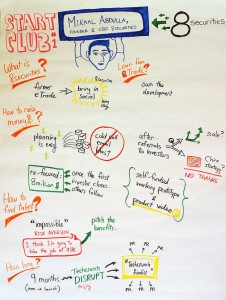 START CLUB
MIKAAL ABDULLA,
FOUNDER & CEO 8SECURITIES
8 securities
What is
8securities?
former
eTrade
bring in
social
Learn from
E Trade?
own the
development
How to raise
money?
planning
is easy
cold call
email
after
referrals
to investors
scale?
China
strategy?
NO THANKS
re-focused:
8 million
once the first
investor closes
others follow
self-funded
working prototype
& product video
How to
find talent?
"impossible"
RISK AVERSION
I think I'm going to
take the job at HSBC
pitch the
benefits...
How long?
9 months
Techcrunch
DISRUPT
Techcrunch
finalist